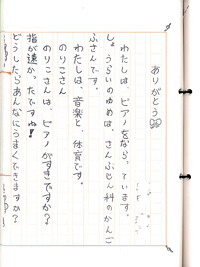 ありがとう
わたしは、ピアノをならっています。
しょうらいのゆめは、さんふじん科のかんご
ふさんです。
わたしは、音楽と、体育です。
のりこさん
のりこさんは、ピアノがすきですか？
指が速か。たですね！
どうしたらあんなにうまくできますか？